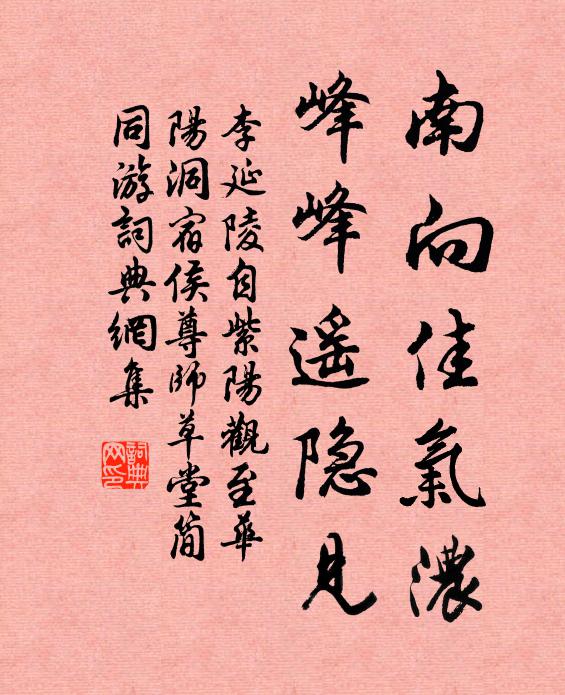 南向佳氣濃
峰峰遥隐見
李延陵自紫陽觀至華
陽洞宿侯尊師草堂简
同游詞典網集
詞典网印